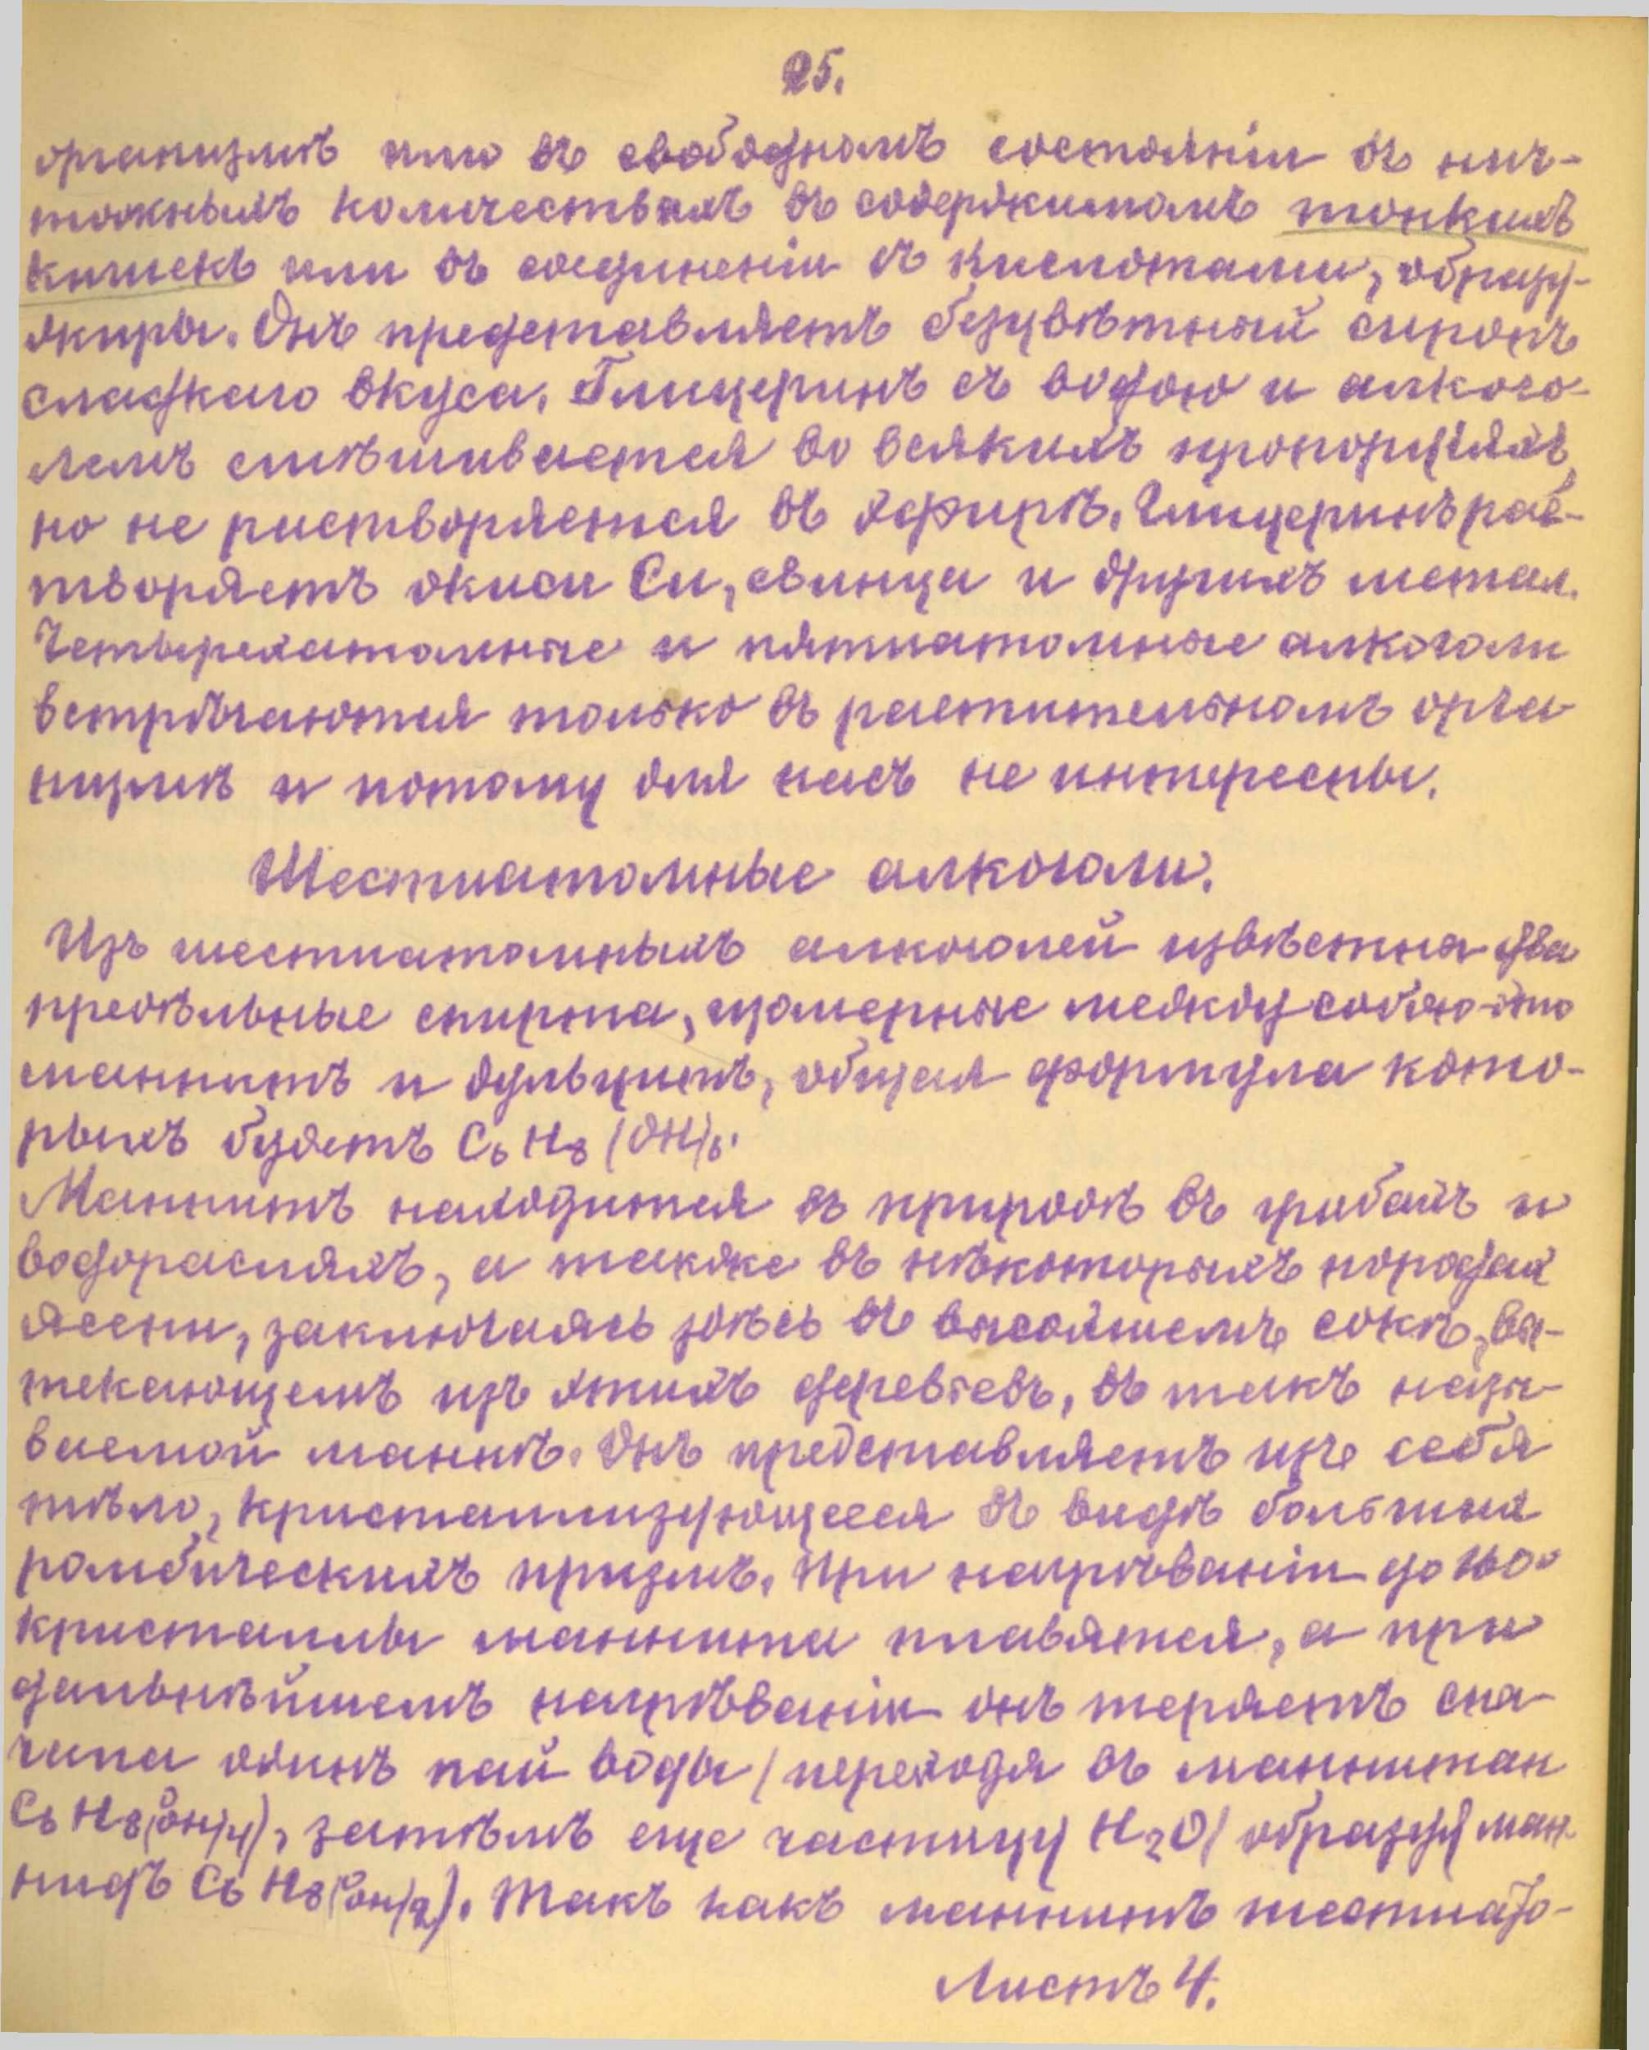 25.
организмѣ или въ свободномъ состояніи въ нич-
тожныхъ количествахъ въ содержимомъ тонкихъ
кишекъ или въ соединеніи съ кислотами, образуя
жиры. Онъ представляетъ безцвѣтный сиропъ
сладкаго вкуса. Глицеринъ съ водою и алкого-
лемъ смѣшивается во всякихъ пропорціяхъ,
но не растворяется въ эфирѣ. Глицеринъ рас-
творяетъ окиси Cu, свинца и другихъ метал.
Четырехатомные и пятиатомные алкоголи
встрѣчаются только въ растительномъ орга-
низмѣ и потому для насъ не интересны.
Шестиатомные алкоголи.
Изъ шестиатомныхъ алкоголей извѣстна два
предѣльные спирта, изомерные между собою-это
маннитъ и дульцитъ, общая формула кото-
рыхъ будетъ C6 H8 (OH)6.
Маннитъ находится въ природѣ въ грибахъ и
водоросляхъ, а также въ нѣкоторыхъ породах
ясени, заключаясь здѣсь въ высохшемъ сокѣ, вы-
текающемъ изъ этихъ деревьевъ, въ такъ назы-
ваемой маннѣ. Онъ представляетъ изъ себя
тѣло, кристаллизующееся въ видѣ большихъ
ромбическихъ призмъ. При нагрѣваніи до 160°
кристаллы маннита плавятся, а при
дальнѣйшемъ нагрѣваніи онъ теряетъ сна-
чала одинъ пай воды (переходя въ маннитан
C6 H8 (O(OH)4), затѣмъ еще частицу H2O (образуя ман-
нидъ C6 H8 (O2(OH)2). Такъ какъ маннитъ шестиато-
Листъ 4.